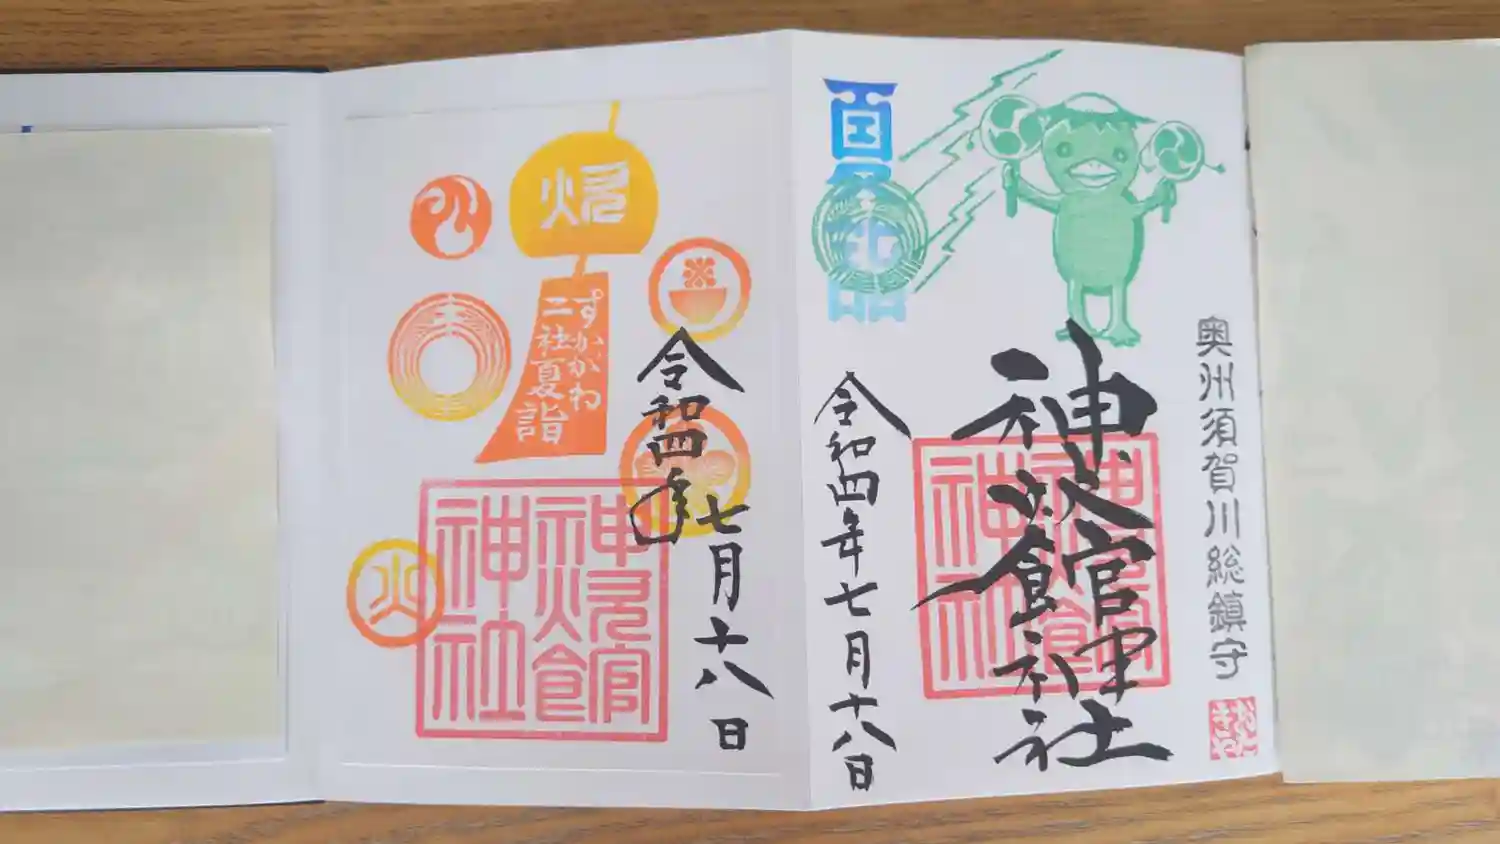 奥州須賀川総鎮守
おたきや
神炊館神社
神炊館
神社
夏
令和四年七月十八日
炊
すかがわ
二社夏詣
令和四年
七月十八日
神炊館
神社
火